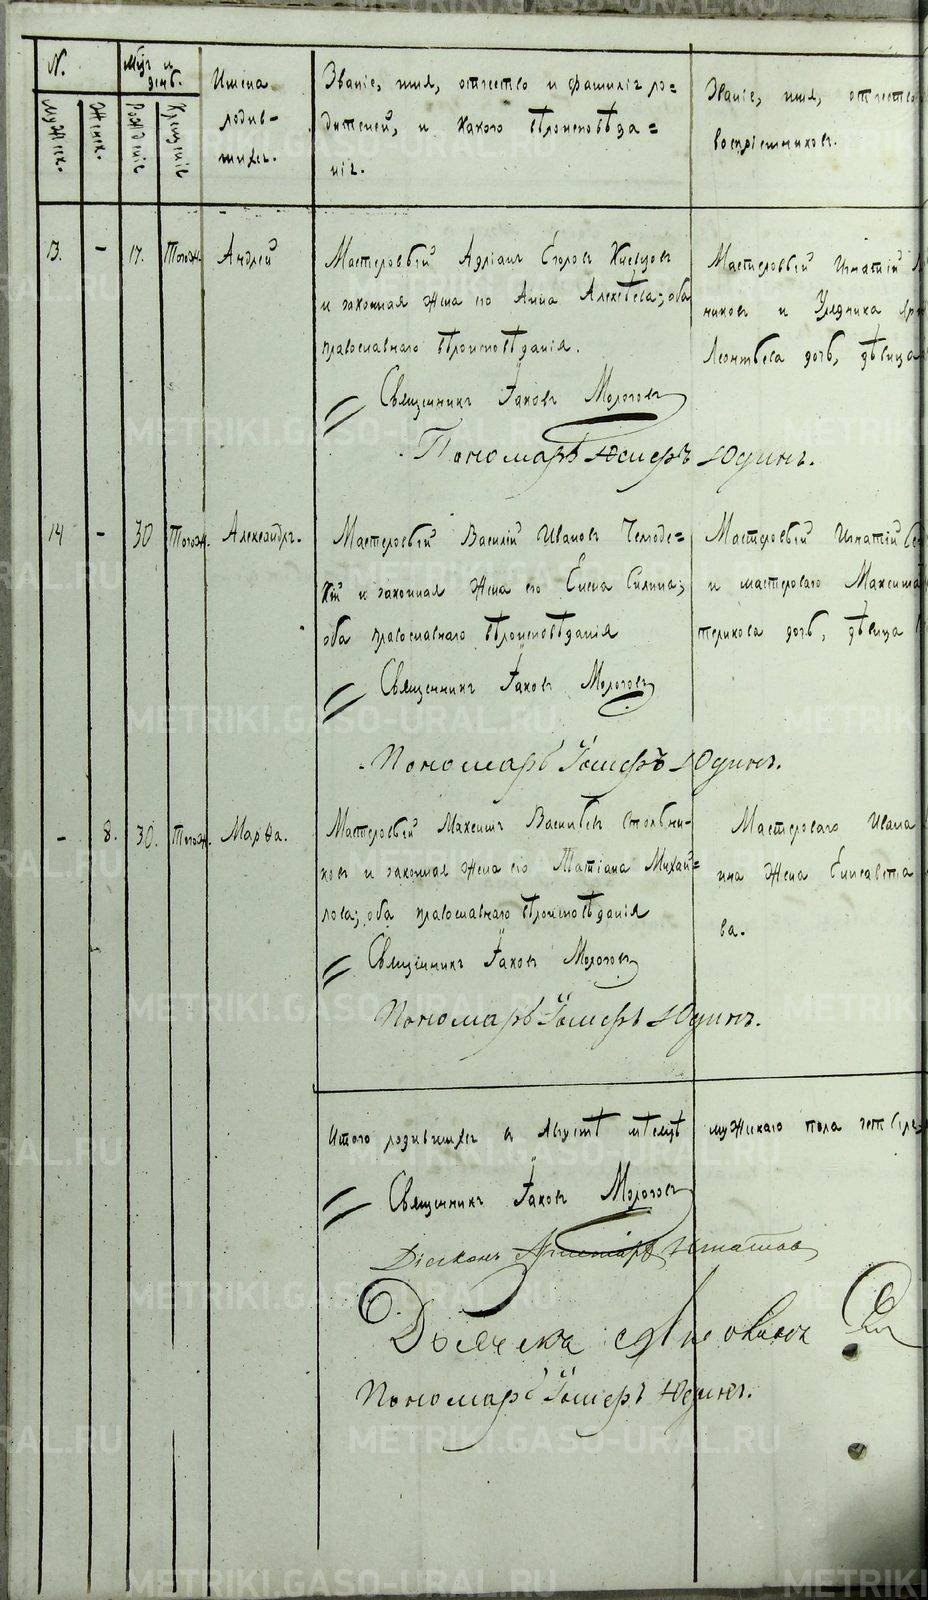 N.
Мѣс. и день.
Имена родив- шихся.
Званіе, имя, отчество и фамилія ро=
дителей, и какого вѣроисповѣда=
нія.
Званіе, имя, отчество
воспріемниковъ.
Мужеск.
Женск.
Рожденіе
Крещеніе
13. - 17. Тогож. Андрей
Мастеровый Адріанъ
и законная жена его Анна Алексѣева; оба
православнаго вѣроисповѣданія.
Священникъ Іаковъ Мологовъ
Пономарь Юдинъ.
Мастеровый Игнатій
никовъ и Урядника
Леонтьева дочь, дѣвица
14 - 30 Тогож. Александръ.
Мастеровый Василій Ивановъ
и законная жена его Елена Силина;
оба православнаго вѣроисповѣданія
Священникъ Іаковъ Мологовъ
Пономарь Юдинъ.
Мастеровый Игнатій
и мастероваго Максима
терикова дочь, дѣвица
- 8. 30. Тогож. Марѳа.
Мастеровый Максимъ Васильевъ Стольни-
ковъ и законная жена его Татіана Михай=
лова; оба православнаго вѣроисповѣданія
Священникъ Іаковъ Мологовъ
Пономарь Юдинъ.
Мастероваго Ивана
ина жена Елисавета
ва.
Итого родившихся въ Августѣ мѣсяцѣ мужскаго пола четыре=
Священникъ Іаковъ Мологовъ
Діаконъ Игнатовъ
Дьячекъ
Пономарь Юдинъ.
METRIKI.GASO-URAL.RU